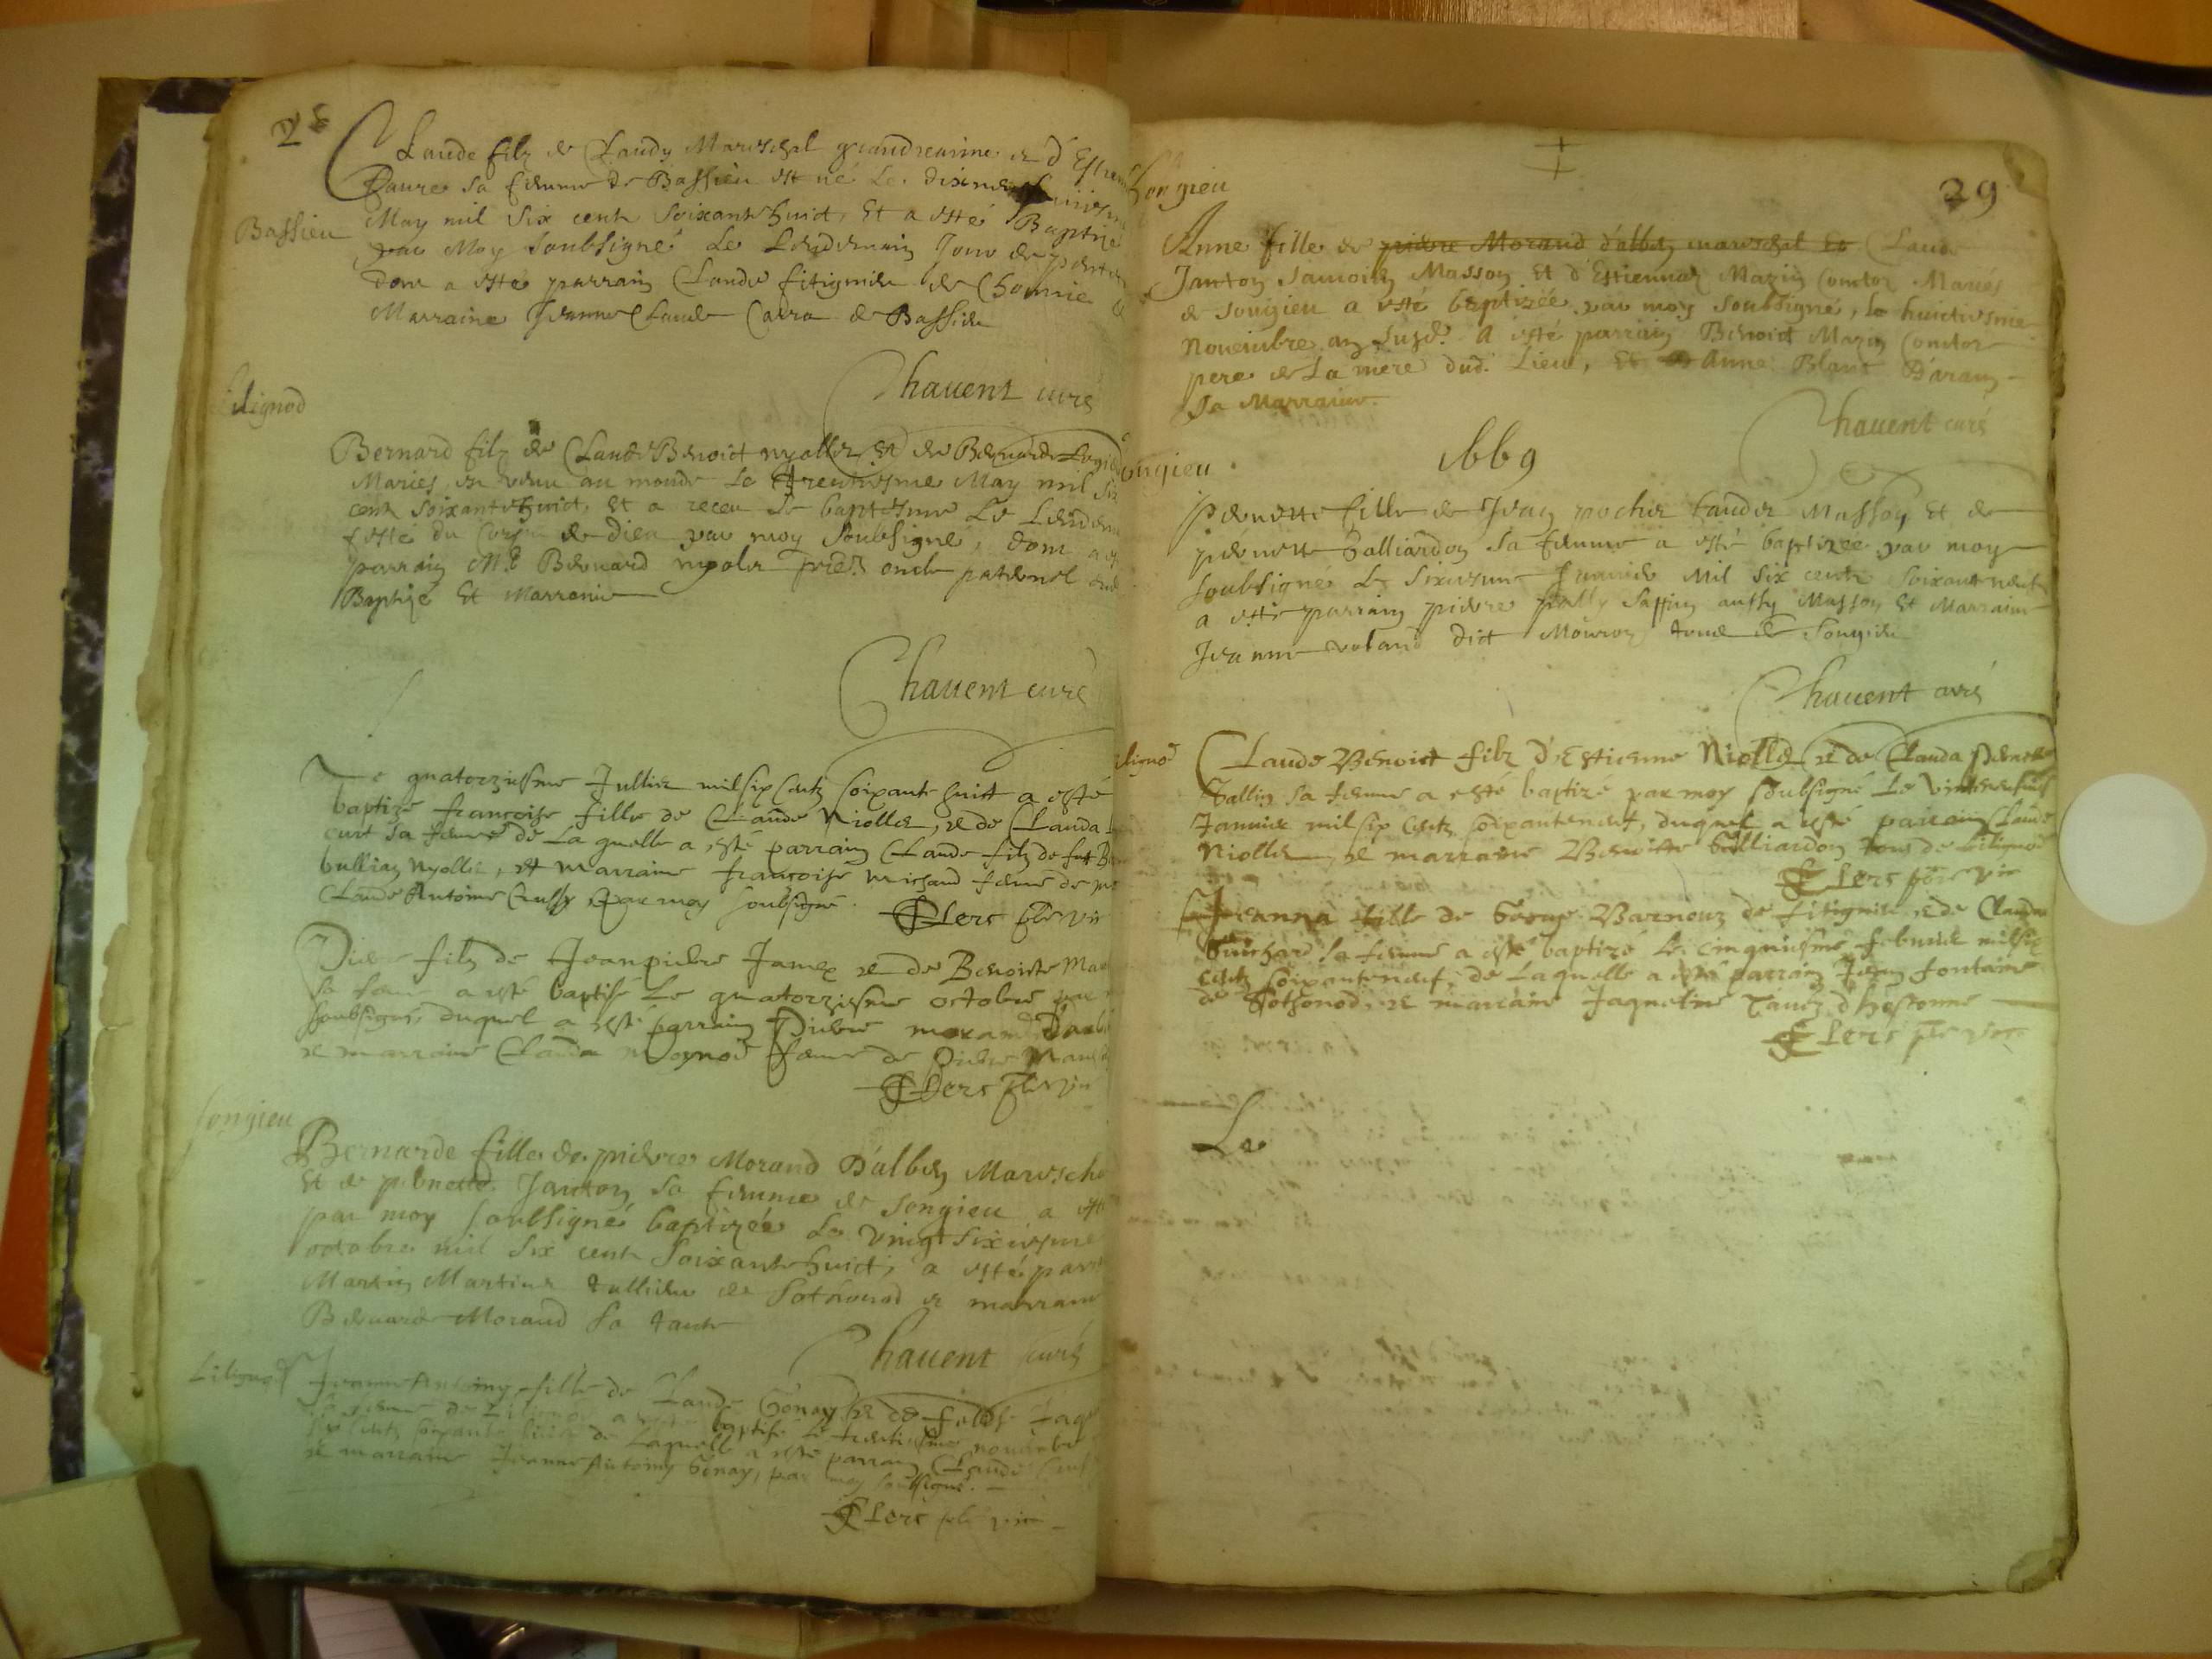 28
Claude filz de Claudy Mareschal grandreanine et d'Estien
Faure sa femme de Bassieu est né le dixne
Bassieu
May mil six cent soixante huict, Et a esté Baptizé
par Moy soubsigné Le Lendemain Jour de
dont a esté parrain Claude fitignieu de Chonnie
Marraine Jeanne Claude Carra de Bassieu
Chavent curé
Lilignod
Bernard filz de Claude Benoict nyollet Et de Bernarde
Mariés, est venu au monde Le trentiesme May mil six
cent soixante huict, Et a receu Le baptesme Le Lendem
feste du Corps de Dieu par moy soubsigné, dont a es
parrain Mre Bernard nyolet oncle paternel dud
Baptizé Et Marraine
Chavent curé
Le quatorziesme Jullier mil six Centz soixante huitt a esté
baptizé francoise fille de Claude Niollet, et de Clauda
sa femme de Laquelle a esté parrain Claude filz de fut
bullian nyollet, et marraine francoise michaud feme de
Claude Antoine Crussy par moy soubsigné.
Clerc pbre vic
Pierre filz de Jeanpierre Jamex et de Benoiste Ma
sa feme a esté baptisé Le quatorziesme octobre par
soubsigné, duquel a esté parrain Pierre morand Dalb
et marraine Clauda moynod feme de Pierre
Clerc pbre vic
Songieu
Bernarde fille de pierre Morand D'albey Maresch
Et de pernette Janton sa femme de Songieu a esté
par moy soubsigné baptizée Le vingt sixiesme
octobre mil six cent soixante huict, a esté parr
Martin Martine tullieu de Sothonod et marraine
Bernarde Morand sa tante
Chavent curé
Lilignod
Jeanne Antoiny fille de Claude Gonay et de
sa femme de Lilignod a esté baptisé Le trentiesme novembre
six Centz soixante huict de Laquelle a esté parrain Claude
et marraine Jeanne Antoiny Gonay, par moy soubsigné.
Clerc pbre vic
29
Songieu
Anne fille de pierre Morand d'albey mareschal Et Claude
Janton Samoin Masson Et d'Estiennaz Mazin Contoz Mariés
de Songieu a esté baptizée par moy soubsigné, le huictiesme
Novembre an susd. a esté parrain Benoict Mazin Contoz
pere de La mere dud. Lieu, Et Anne Blanc D'aran
sa Marraine.
Chavent curé
1669
Songieu
Pernette fille de Jean pochet tander Masson, Et de
pernette Galliardon sa femme a esté baptizée par moy
soubsigné Le sixiesme Janvier Mil six cent soixanteneuf
a esté parrain pierre aussy Masson Et Marraine
Jeanne voland dict Mouron tous de Songieu
Chavent curé
Lilignod
Claude Benoict filz d'Estienne Niollet et de Clauda Pernette
Gallin sa femme a esté baptizé par moy soubsigné Le
Janvier mil six Centz soixanteneuf, duquel a esté parrain Claude
Niollet et marraine Benoitte Galliardon tous de Lilignod
Clerc pbre vic
Jeanna fille de George Barnouz de fitignieu et de Clauda
Guichard sa femme a esté baptizé Le cinquiesme febvrier mil six
Centz soixanteneuf, de Laquelle a esté parrain Jean fontaine
de Sothonod, et marraine Jaqueline d'hostonne
Clerc pbre vic
Le